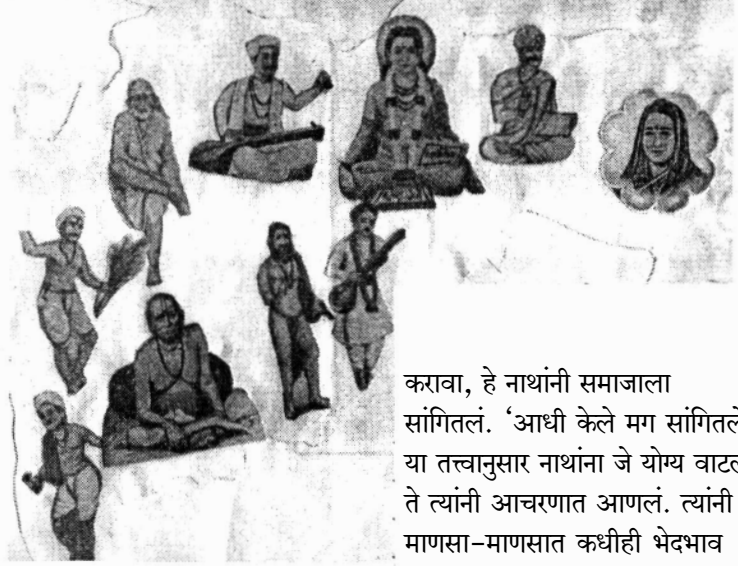 करावा, हे नाथांनी समाजाला
सांगितलं. ‘आधी केले मग सांगितले
या तत्त्वानुसार नाथांना जे योग्य वाटल
ते त्यांनी आचरणात आणलं. त्यांनी
माणसा-माणसात कधीही भेदभाव